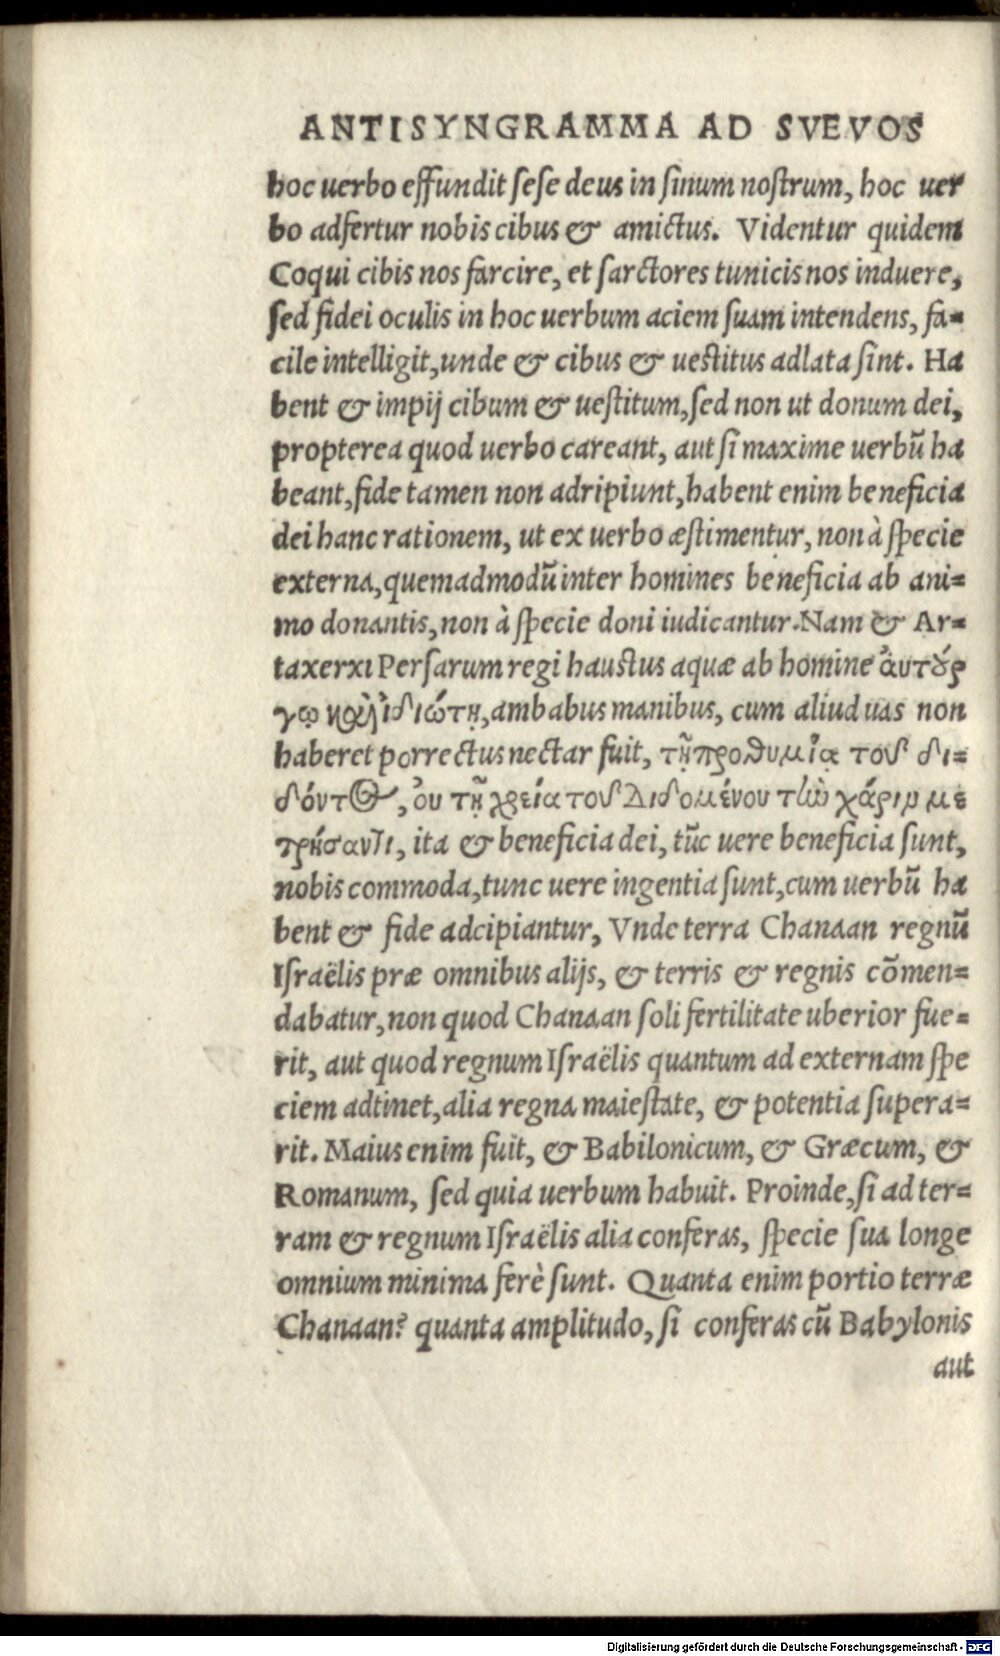 ANTISYNGRAMMA AD SVEVOS
hoc uerbo effundit sese deus in sinum nostrum, hoc uer
bo adfertur nobis cibus & amictus. Videntur quidem
Coqui cibis nos farcire, et sarctores tunicis nos induere,
sed fidei oculis in hoc uerbum aciem suam intendens, fa=
cile intelligit, unde & cibus & uestitus adlata sint. Ha
bent & impij cibum & uestitum, sed non ut donum dei,
propterea quod uerbo careant, aut si maxime uerbũ ha
beant, fide tamen non adripiunt, habent enim beneficia
dei hanc rationem, ut ex uerbo æstimentur, non à specie
externa, quemadmodũ inter homines beneficia ab ani=
mo donantis, non à specie doni iudicantur. Nam & Ar=
taxerxi Persarum regi haustus aquæ ab homine ἀυτȣ́ρ
γῳ καὶ ἰδιώτῃ, ambabus manibus, cum aliud uas non
haberet porrectus nectar fuit, τῇ προθυμίᾳ τοῦ δι=
δόντος, ὀυ τῇ χρείᾳ τοῦ Διδομένου τὼ χάριν με
τρήσαντι, ita & beneficia dei, tũc uere beneficia sunt,
nobis commoda, tunc uere ingentia sunt, cum uerbũ ha
bent & fide adcipiantur, Vnde terra Chanaan regnũ
Israëlis præ omnibus alijs, & terris & regnis cõmen=
dabatur, non quod Chanaan soli fertilitate uberior fue=
rit, aut quod regnum Israëlis quantum ad externam spe
ciem adtinet, alia regna maiestate, & potentia supera=
rit. Maius enim fuit, & Babilonicum, & Græcum, &
Romanum, sed quia uerbum habuit. Proinde, si ad ter=
ram & regnum Israëlis alia conferas, specie sua longe
omnium minima ferè sunt. Quanta enim portio terræ
Chanaan? quanta amplitudo, si conferas cũ Babylonis
aut
Digitalisierung gefördert durch die Deutsche Forschungsgemeinschaft - DFG